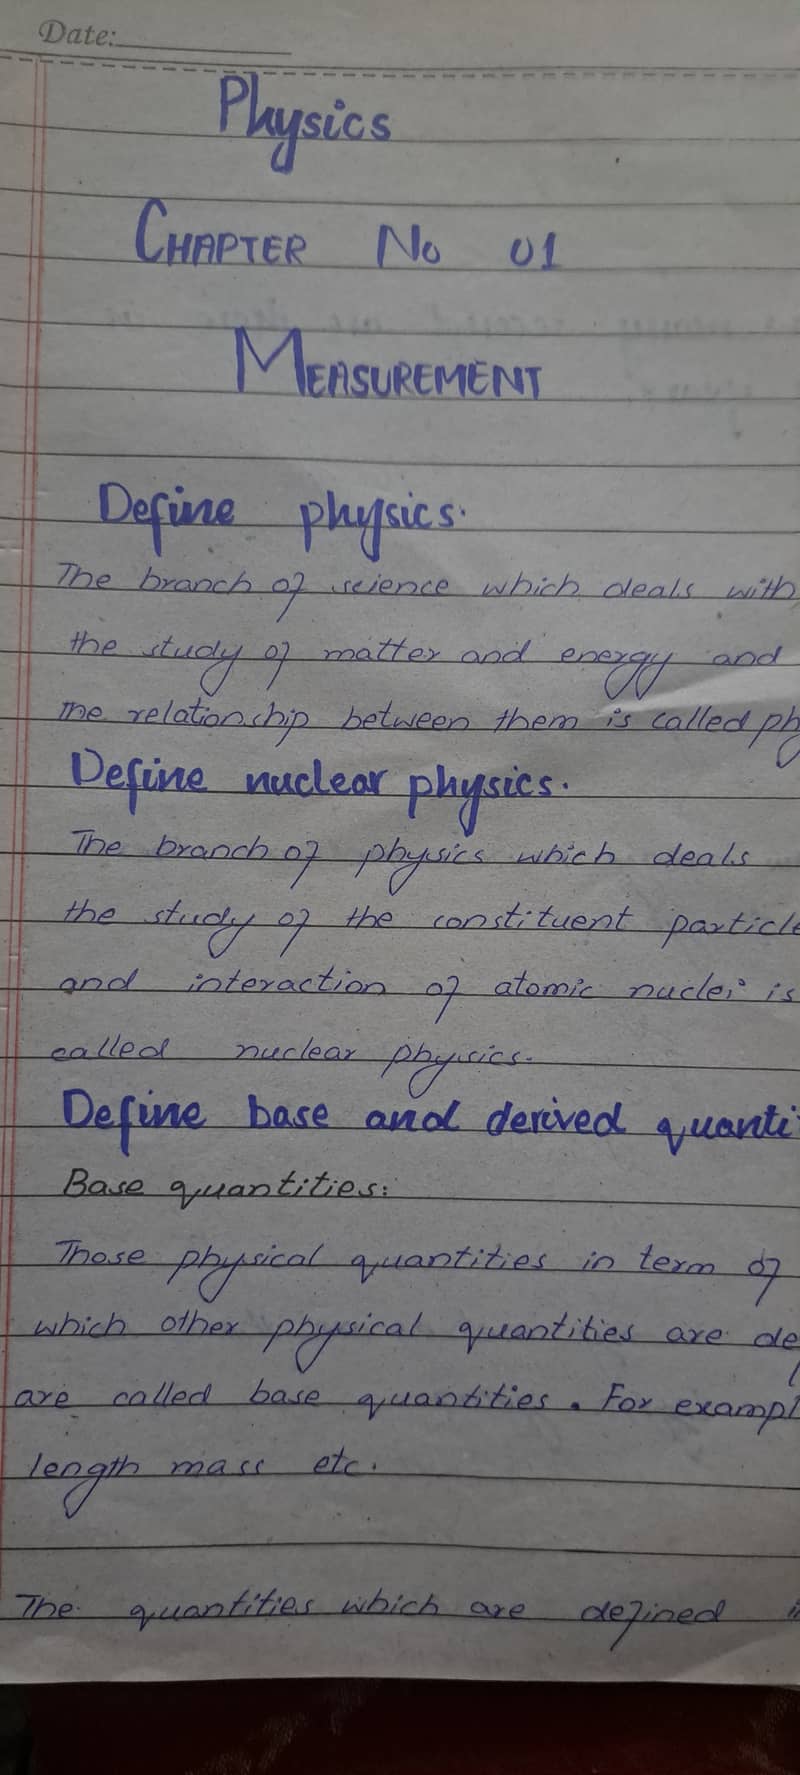 Date:
Physics
CHAPTER No 01
MEASUREMENT
Define physics.
The branch of science which deals with
the study of matter and energy and
the relationship between them is called phy
Define nuclear physics.
The branch of physics which deals
the study of the constituent particle
and interaction of atomic nuclei is
called nuclear physics.
Define base and derived quanti
Base quantities:
Those physical quantities in term of
which other physical quantities are de
are called base quantities. For exampl
length mass etc.
The quantities which are defined i